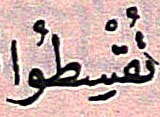 تُقْسِطُوا